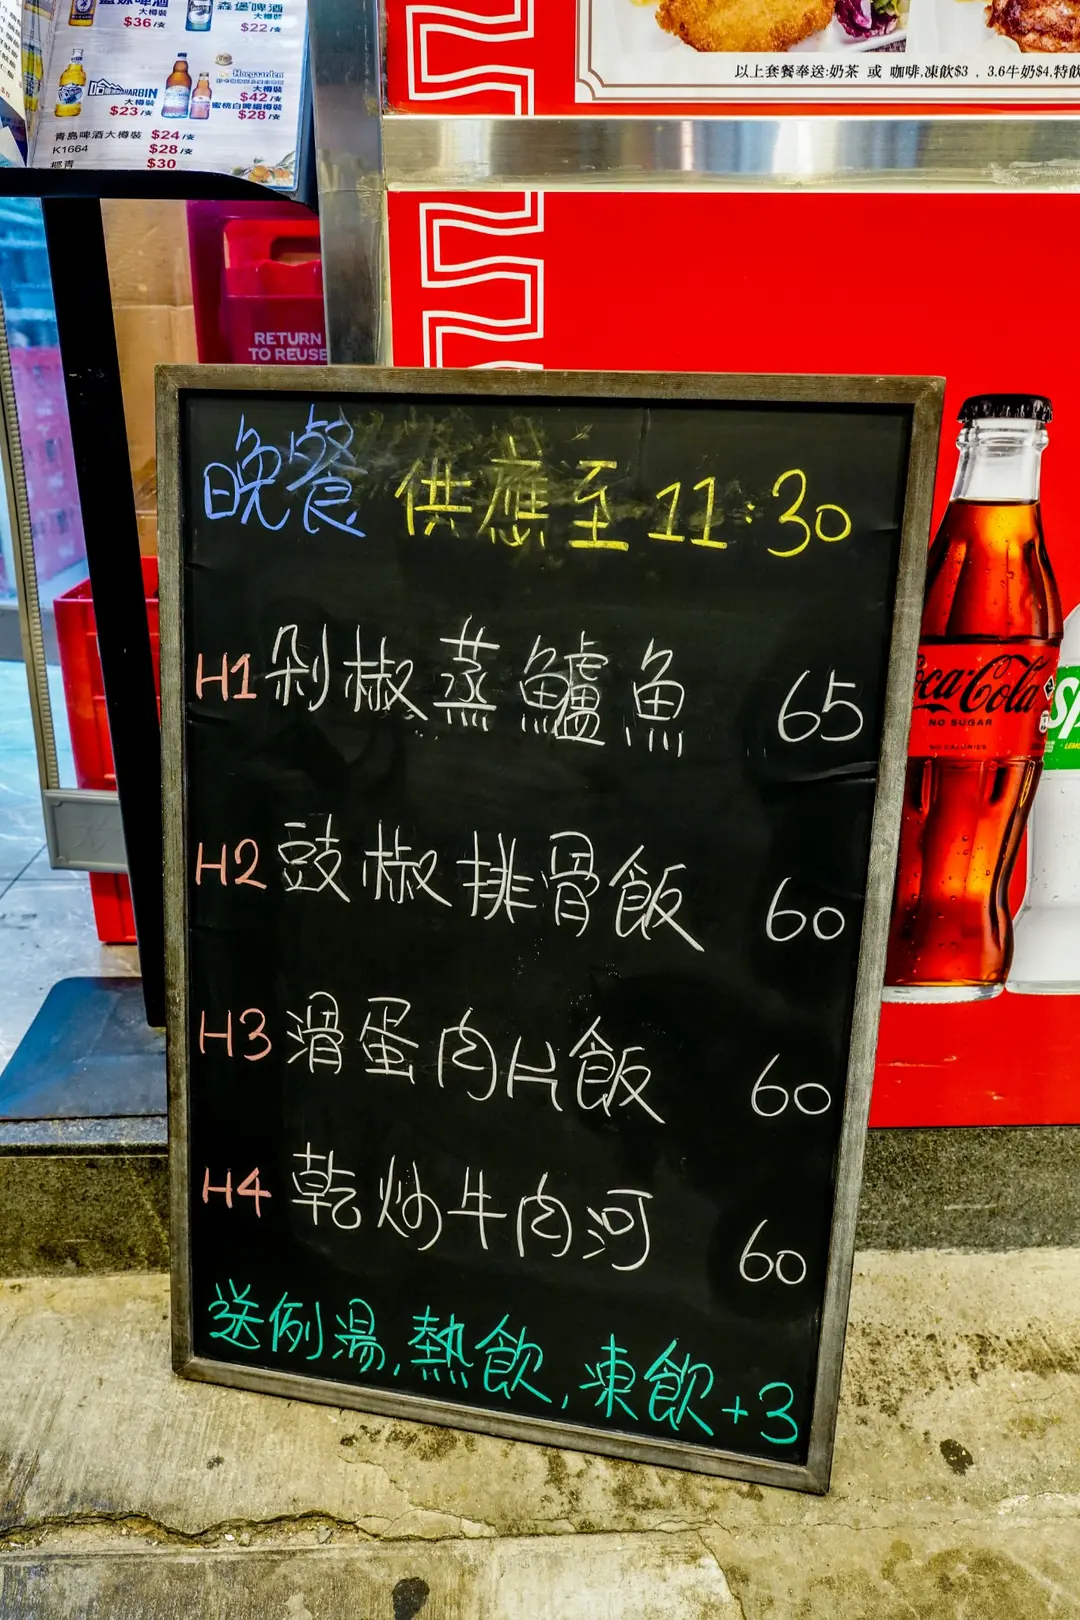 森堡啤酒
大樽裝
$36/支
大樽裝
$22/支
HARBIN
大樽裝
$23/支
Hoegaarden
大樽裝
$42/支
蜜桃白啤細樽裝
$28/支
青島啤酒大樽裝 $24/支
K1664 $28/支
椰青 $30
以上套餐奉送:奶茶 或 咖啡,凍飲$3 , 3.6牛奶$4,特飲
RETURN
TO REUSE
晚餐 供應至 11:30
H1 剁椒蒸鱸魚 65
H2 豉椒排骨飯 60
H3 滑蛋肉片飯 60
H4 乾炒牛肉河 60
送例湯,熱飲,凍飲+3
Coca-Cola
NO SUGAR
NO CALORIES
Sp